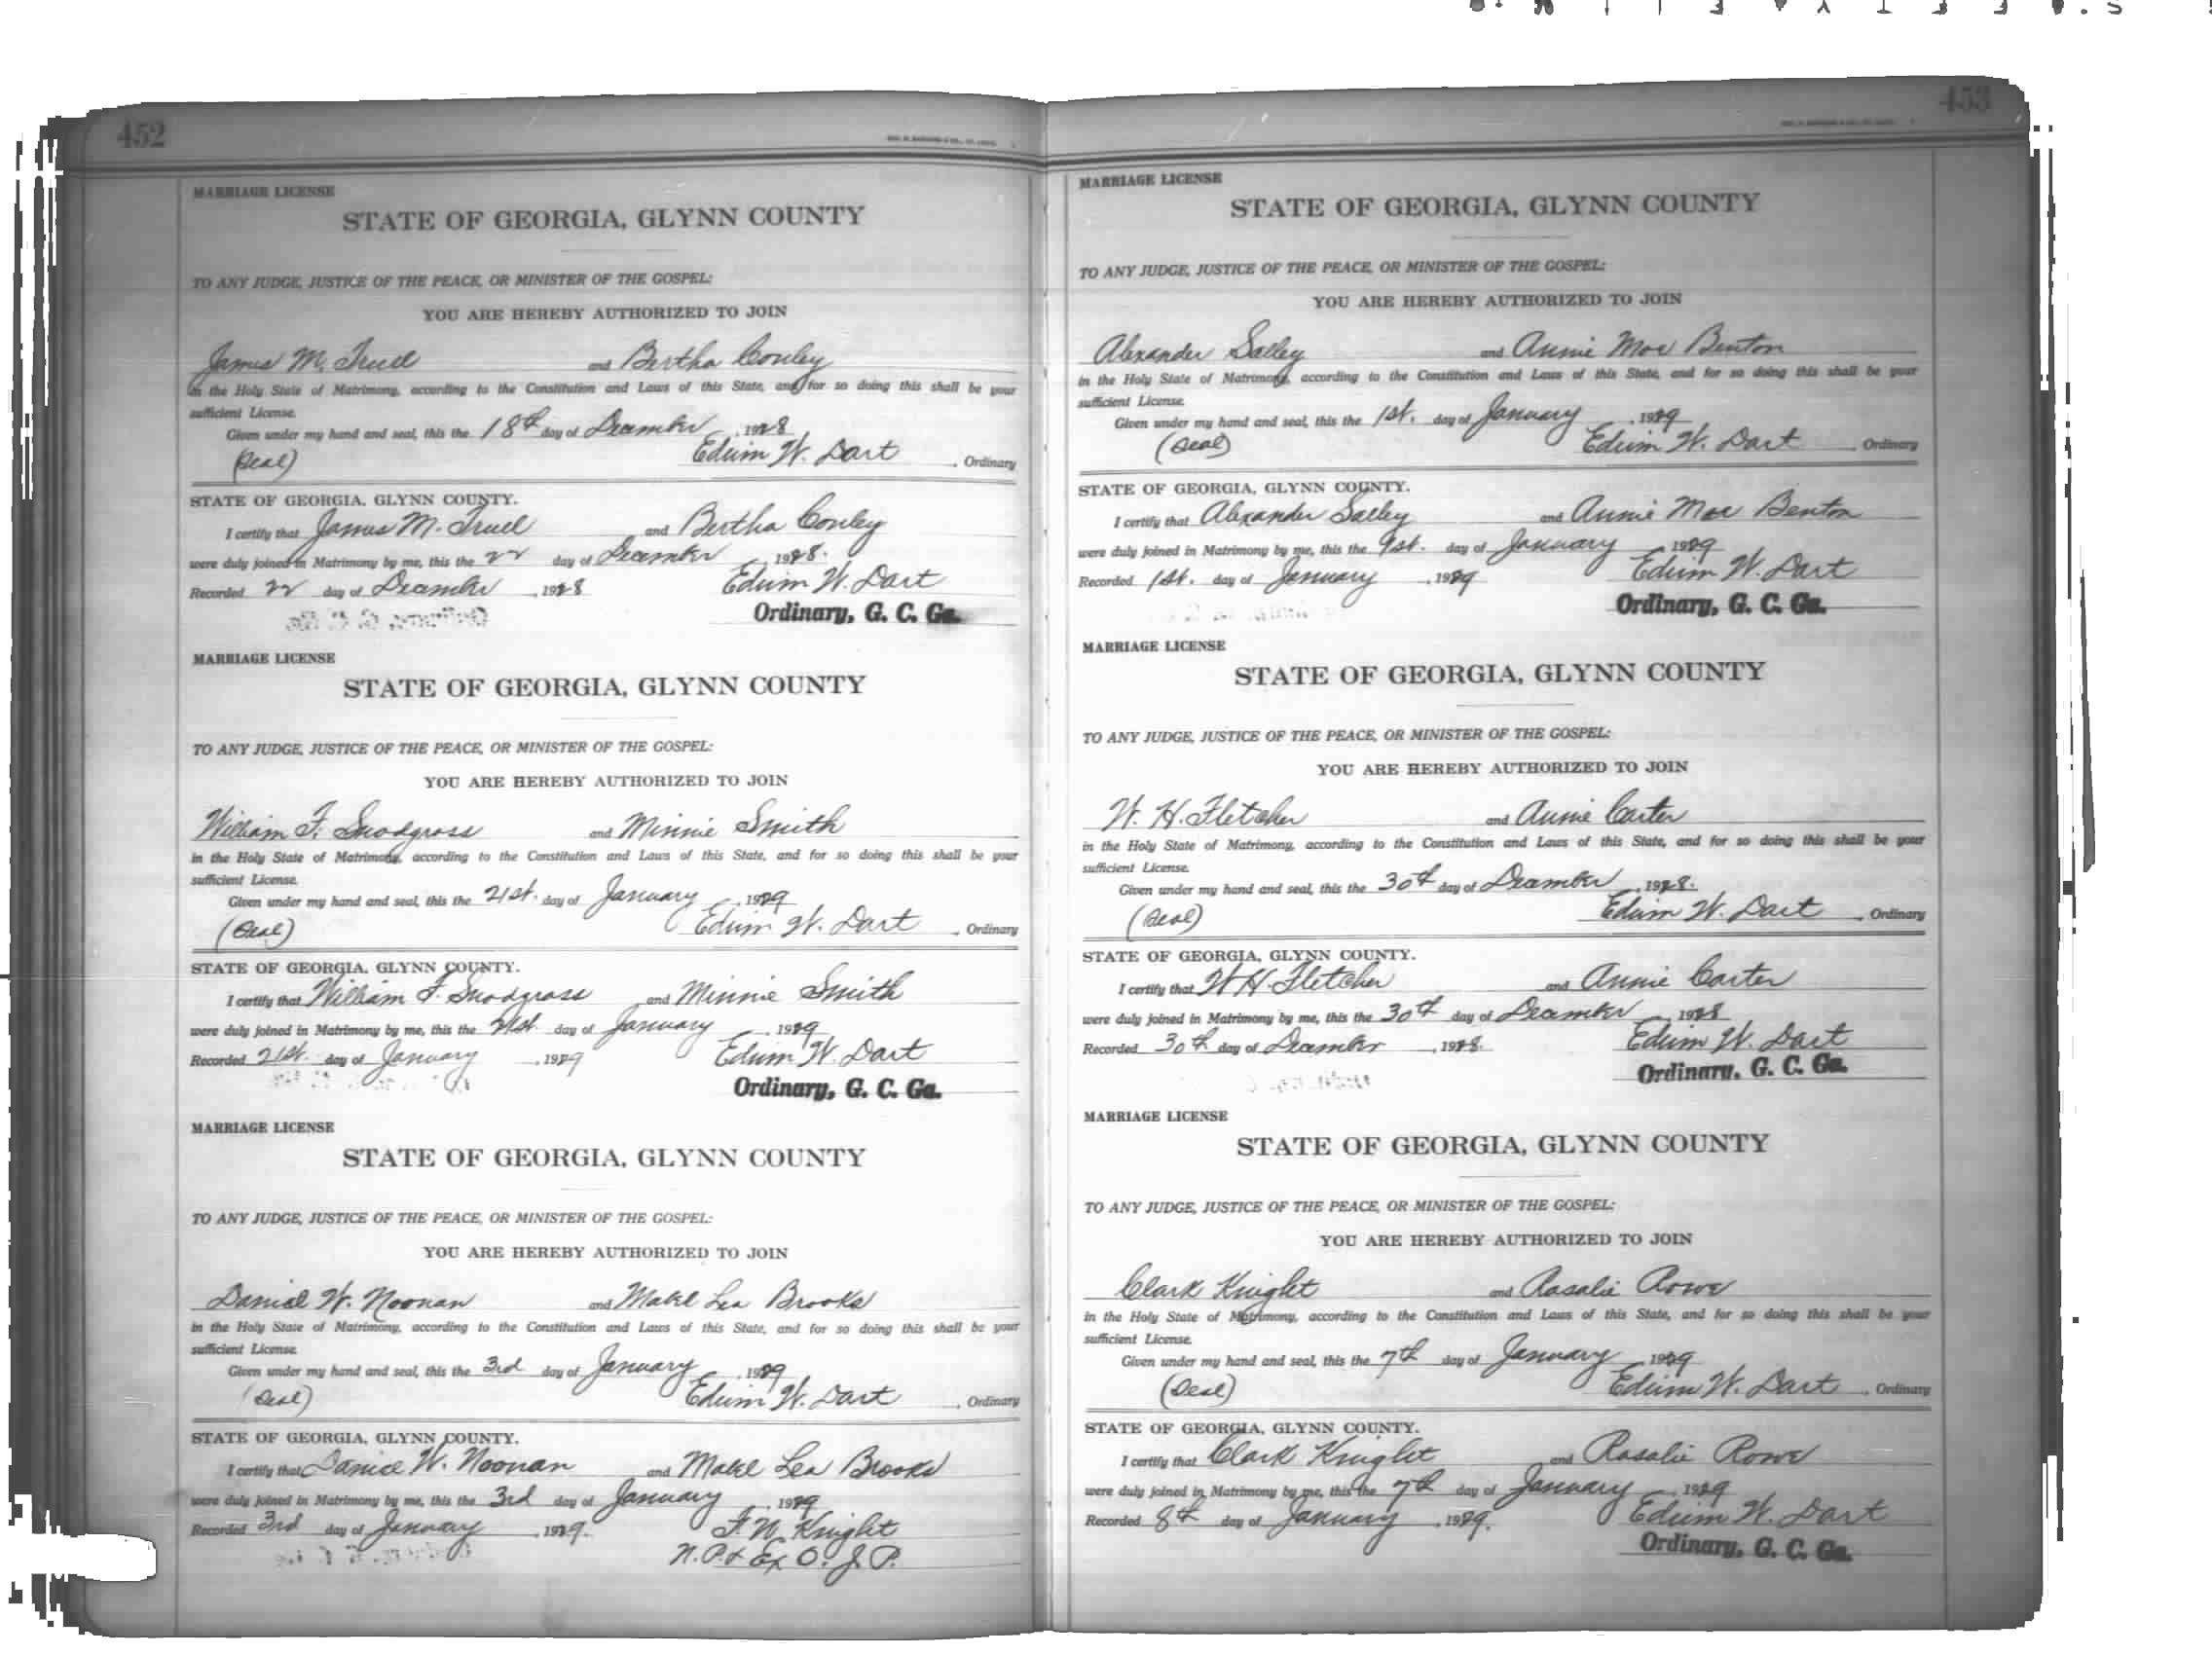 452
MARRIAGE LICENSE
STATE OF GEORGIA, GLYNN COUNTY
TO ANY JUDGE, JUSTICE OF THE PEACE, OR MINISTER OF THE GOSPEL:
YOU ARE HEREBY AUTHORIZED TO JOIN
James M. Truell and Bertha Conley
in the Holy State of Matrimony, according to the Constitution and Laws of this State, and for so doing this shall be your
sufficient License.
Given under my hand and seal, this the 18th day of December, 1928
(Seal) Edwin W. Dart, Ordinary
STATE OF GEORGIA, GLYNN COUNTY.
I certify that James M. Truell and Bertha Conley
were duly joined in Matrimony by me, this the 22 day of December, 1928.
Recorded 22 day of December, 1928 Edwin W. Dart
Ordinary, G. C. Ga.
MARRIAGE LICENSE
STATE OF GEORGIA, GLYNN COUNTY
TO ANY JUDGE, JUSTICE OF THE PEACE, OR MINISTER OF THE GOSPEL:
YOU ARE HEREBY AUTHORIZED TO JOIN
William F. Snodgrass and Minnie Smith
in the Holy State of Matrimony, according to the Constitution and Laws of this State, and for so doing this shall be your
sufficient License.
Given under my hand and seal, this the 21st. day of January, 1929
(Seal) Edwin W. Dart, Ordinary
STATE OF GEORGIA, GLYNN COUNTY.
I certify that William F. Snodgrass and Minnie Smith
were duly joined in Matrimony by me, this the 21st. day of January, 1929
Recorded 21st. day of January, 1929 Edwin W. Dart
Ordinary, G. C. Ga.
MARRIAGE LICENSE
STATE OF GEORGIA, GLYNN COUNTY
TO ANY JUDGE, JUSTICE OF THE PEACE, OR MINISTER OF THE GOSPEL:
YOU ARE HEREBY AUTHORIZED TO JOIN
Daniel W. Noonan and Mabel Lea Brooks
in the Holy State of Matrimony, according to the Constitution and Laws of this State, and for so doing this shall be your
sufficient License.
Given under my hand and seal, this the 3rd day of January, 1929
(Seal) Edwin W. Dart, Ordinary
STATE OF GEORGIA, GLYNN COUNTY.
I certify that Daniel W. Noonan and Mabel Lea Brooks
were duly joined in Matrimony by me, this the 3rd day of January, 1929
Recorded 3rd day of January, 1929. F. W. Knight
N. P. & Ex O. J. P.
453
MARRIAGE LICENSE
STATE OF GEORGIA, GLYNN COUNTY
TO ANY JUDGE, JUSTICE OF THE PEACE, OR MINISTER OF THE GOSPEL:
YOU ARE HEREBY AUTHORIZED TO JOIN
Alexander Salley and Annie Mae Benton
in the Holy State of Matrimony, according to the Constitution and Laws of this State, and for so doing this shall be your
sufficient License.
Given under my hand and seal, this the 1st. day of January, 1929
(Seal) Edwin W. Dart, Ordinary
STATE OF GEORGIA, GLYNN COUNTY.
I certify that Alexander Salley and Annie Mae Benton
were duly joined in Matrimony by me, this the 1st. day of January, 1929
Recorded 1st. day of January, 1929 Edwin W. Dart
Ordinary, G. C. Ga.
MARRIAGE LICENSE
STATE OF GEORGIA, GLYNN COUNTY
TO ANY JUDGE, JUSTICE OF THE PEACE, OR MINISTER OF THE GOSPEL:
YOU ARE HEREBY AUTHORIZED TO JOIN
W. H. Fletcher and Annie Carter
in the Holy State of Matrimony, according to the Constitution and Laws of this State, and for so doing this shall be your
sufficient License.
Given under my hand and seal, this the 30th day of December, 1928.
(Seal) Edwin W. Dart, Ordinary
STATE OF GEORGIA, GLYNN COUNTY.
I certify that W. H. Fletcher and Annie Carter
were duly joined in Matrimony by me, this the 30th day of December, 1928
Recorded 30th day of December, 1928. Edwin W. Dart
Ordinary, G. C. Ga.
MARRIAGE LICENSE
STATE OF GEORGIA, GLYNN COUNTY
TO ANY JUDGE, JUSTICE OF THE PEACE, OR MINISTER OF THE GOSPEL:
YOU ARE HEREBY AUTHORIZED TO JOIN
Clark Knight and Rasalie Rowe
in the Holy State of Matrimony, according to the Constitution and Laws of this State, and for so doing this shall be your
sufficient License.
Given under my hand and seal, this the 7th day of January, 1929
(Seal) Edwin W. Dart, Ordinary
STATE OF GEORGIA, GLYNN COUNTY.
I certify that Clark Knight and Rasalie Rowe
were duly joined in Matrimony by me, this the 7th day of January, 1929
Recorded 8th day of January, 1929. Edwin W. Dart
Ordinary, G. C. Ga.